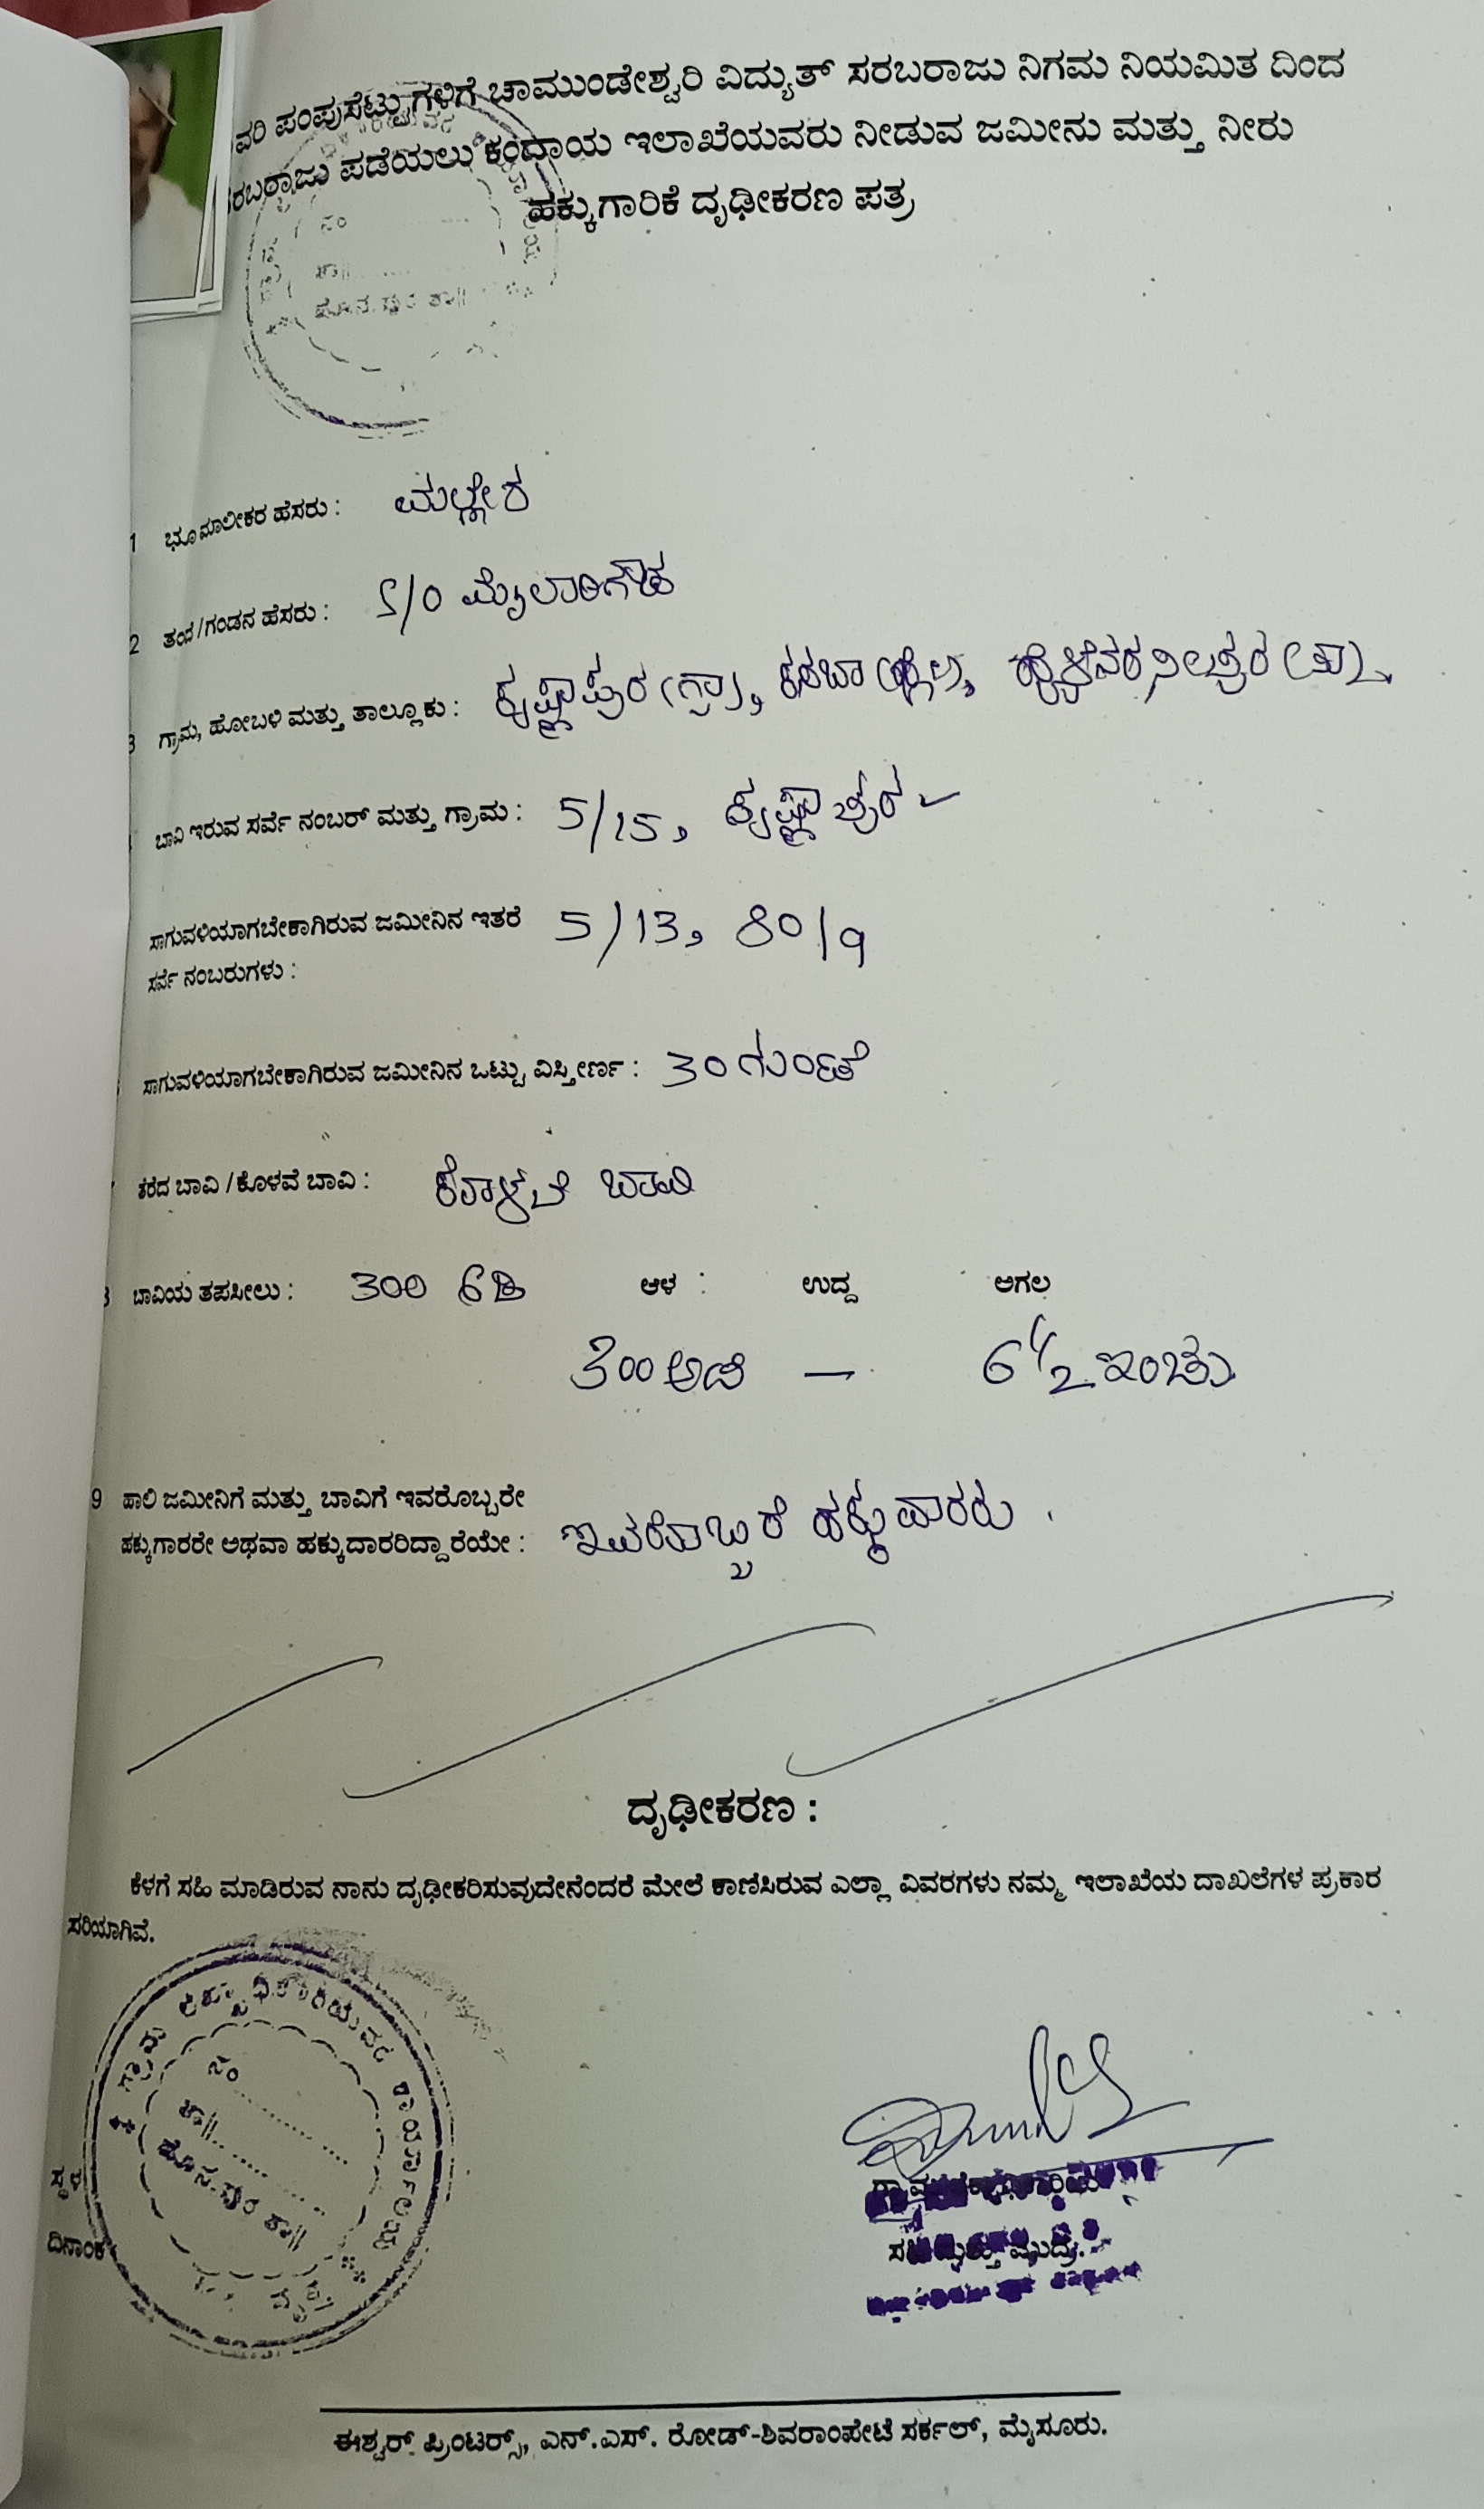 ವರಿ ಪಂಪುಸೆಟ್ಟುಗಳಿಗೆ ಚಾಮುಂಡೇಶ್ವರಿ ವಿದ್ಯುತ್ ಸರಬರಾಜು ನಿಗಮ ನಿಯಮಿತ ದಿಂದ
ರಬರಾಜು ಪಡೆಯಲು ಕಂದಾಯ ಇಲಾಖೆಯವರು ನೀಡುವ ಜಮೀನು ಮತ್ತು ನೀರು
ಹಕ್ಕುಗಾರಿಕೆ ದೃಢೀಕರಣ ಪತ್ರ
ನಂ
ತಾ||
1 ಭೂಮಾಲೀಕರ ಹೆಸರು :
2 ತಂದೆ/ಗಂಡನ ಹೆಸರು : S/O
3 ಗ್ರಾಮ, ಹೋಬಳಿ ಮತ್ತು ತಾಲ್ಲೂಕು : ಕೃಷ್ಣಾಪುರ (ಗ್ರಾ), ಕಸಬಾ
ಬಾವಿ ಇರುವ ಸರ್ವೆ ನಂಬರ್ ಮತ್ತು ಗ್ರಾಮ : 5/15, ಕೃಷ್ಣಾಪುರ
ಸಾಗುವಳಿಯಾಗಬೇಕಾಗಿರುವ ಜಮೀನಿನ ಇತರೆ 5/13, 80/9
ಸರ್ವೆ ನಂಬರುಗಳು :
ಸಾಗುವಳಿಯಾಗಬೇಕಾಗಿರುವ ಜಮೀನಿನ ಒಟ್ಟು ವಿಸ್ತೀರ್ಣ : 30 ಗುಂಟೆ
ತೆರೆದ ಬಾವಿ / ಕೊಳವೆ ಬಾವಿ : ಕೊಳವೆ ಬಾವಿ
ಬಾವಿಯ ತಪಸೀಲು : 300 ಆಳ : ಉದ್ದ ಅಗಲ
300 ಅಡಿ — 6 1/2 ಇಂಚು
9 ಹಾಲಿ ಜಮೀನಿಗೆ ಮತ್ತು ಬಾವಿಗೆ ಇವರೊಬ್ಬರೇ
ಹಕ್ಕುಗಾರರೇ ಅಥವಾ ಹಕ್ಕುದಾರರಿದ್ದಾರೆಯೇ : ಇವರೊಬ್ಬರೆ ಹಕ್ಕುದಾರರು .
ದೃಢೀಕರಣ :
ಕೆಳಗೆ ಸಹಿ ಮಾಡಿರುವ ನಾನು ದೃಢೀಕರಿಸುವುದೇನೆಂದರೆ ಮೇಲೆ ಕಾಣಿಸಿರುವ ಎಲ್ಲಾ ವಿವರಗಳು ನಮ್ಮ ಇಲಾಖೆಯ ದಾಖಲೆಗಳ ಪ್ರಕಾರ
ಸರಿಯಾಗಿವೆ.
ಗ್ರಾಮ ಲೆಕ್ಕಾಧಿಕಾರಿಯವರ ಕಾರ್ಯಾಲಯ
ನಂ
ತಾ||
ಹೊ.ನ.ಪುರ ತಾ||
ವೃತ್ತ
ಸ್ಥಳ
ದಿನಾಂಕ
ಸಹಿ ಮತ್ತು ಮುದ್ರೆ.
ಈಶ್ವರ್ ಪ್ರಿಂಟರ್ಸ್, ಎನ್.ಎಸ್. ರೋಡ್-ಶಿವರಾಂಪೇಟೆ ಸರ್ಕಲ್, ಮೈಸೂರು.